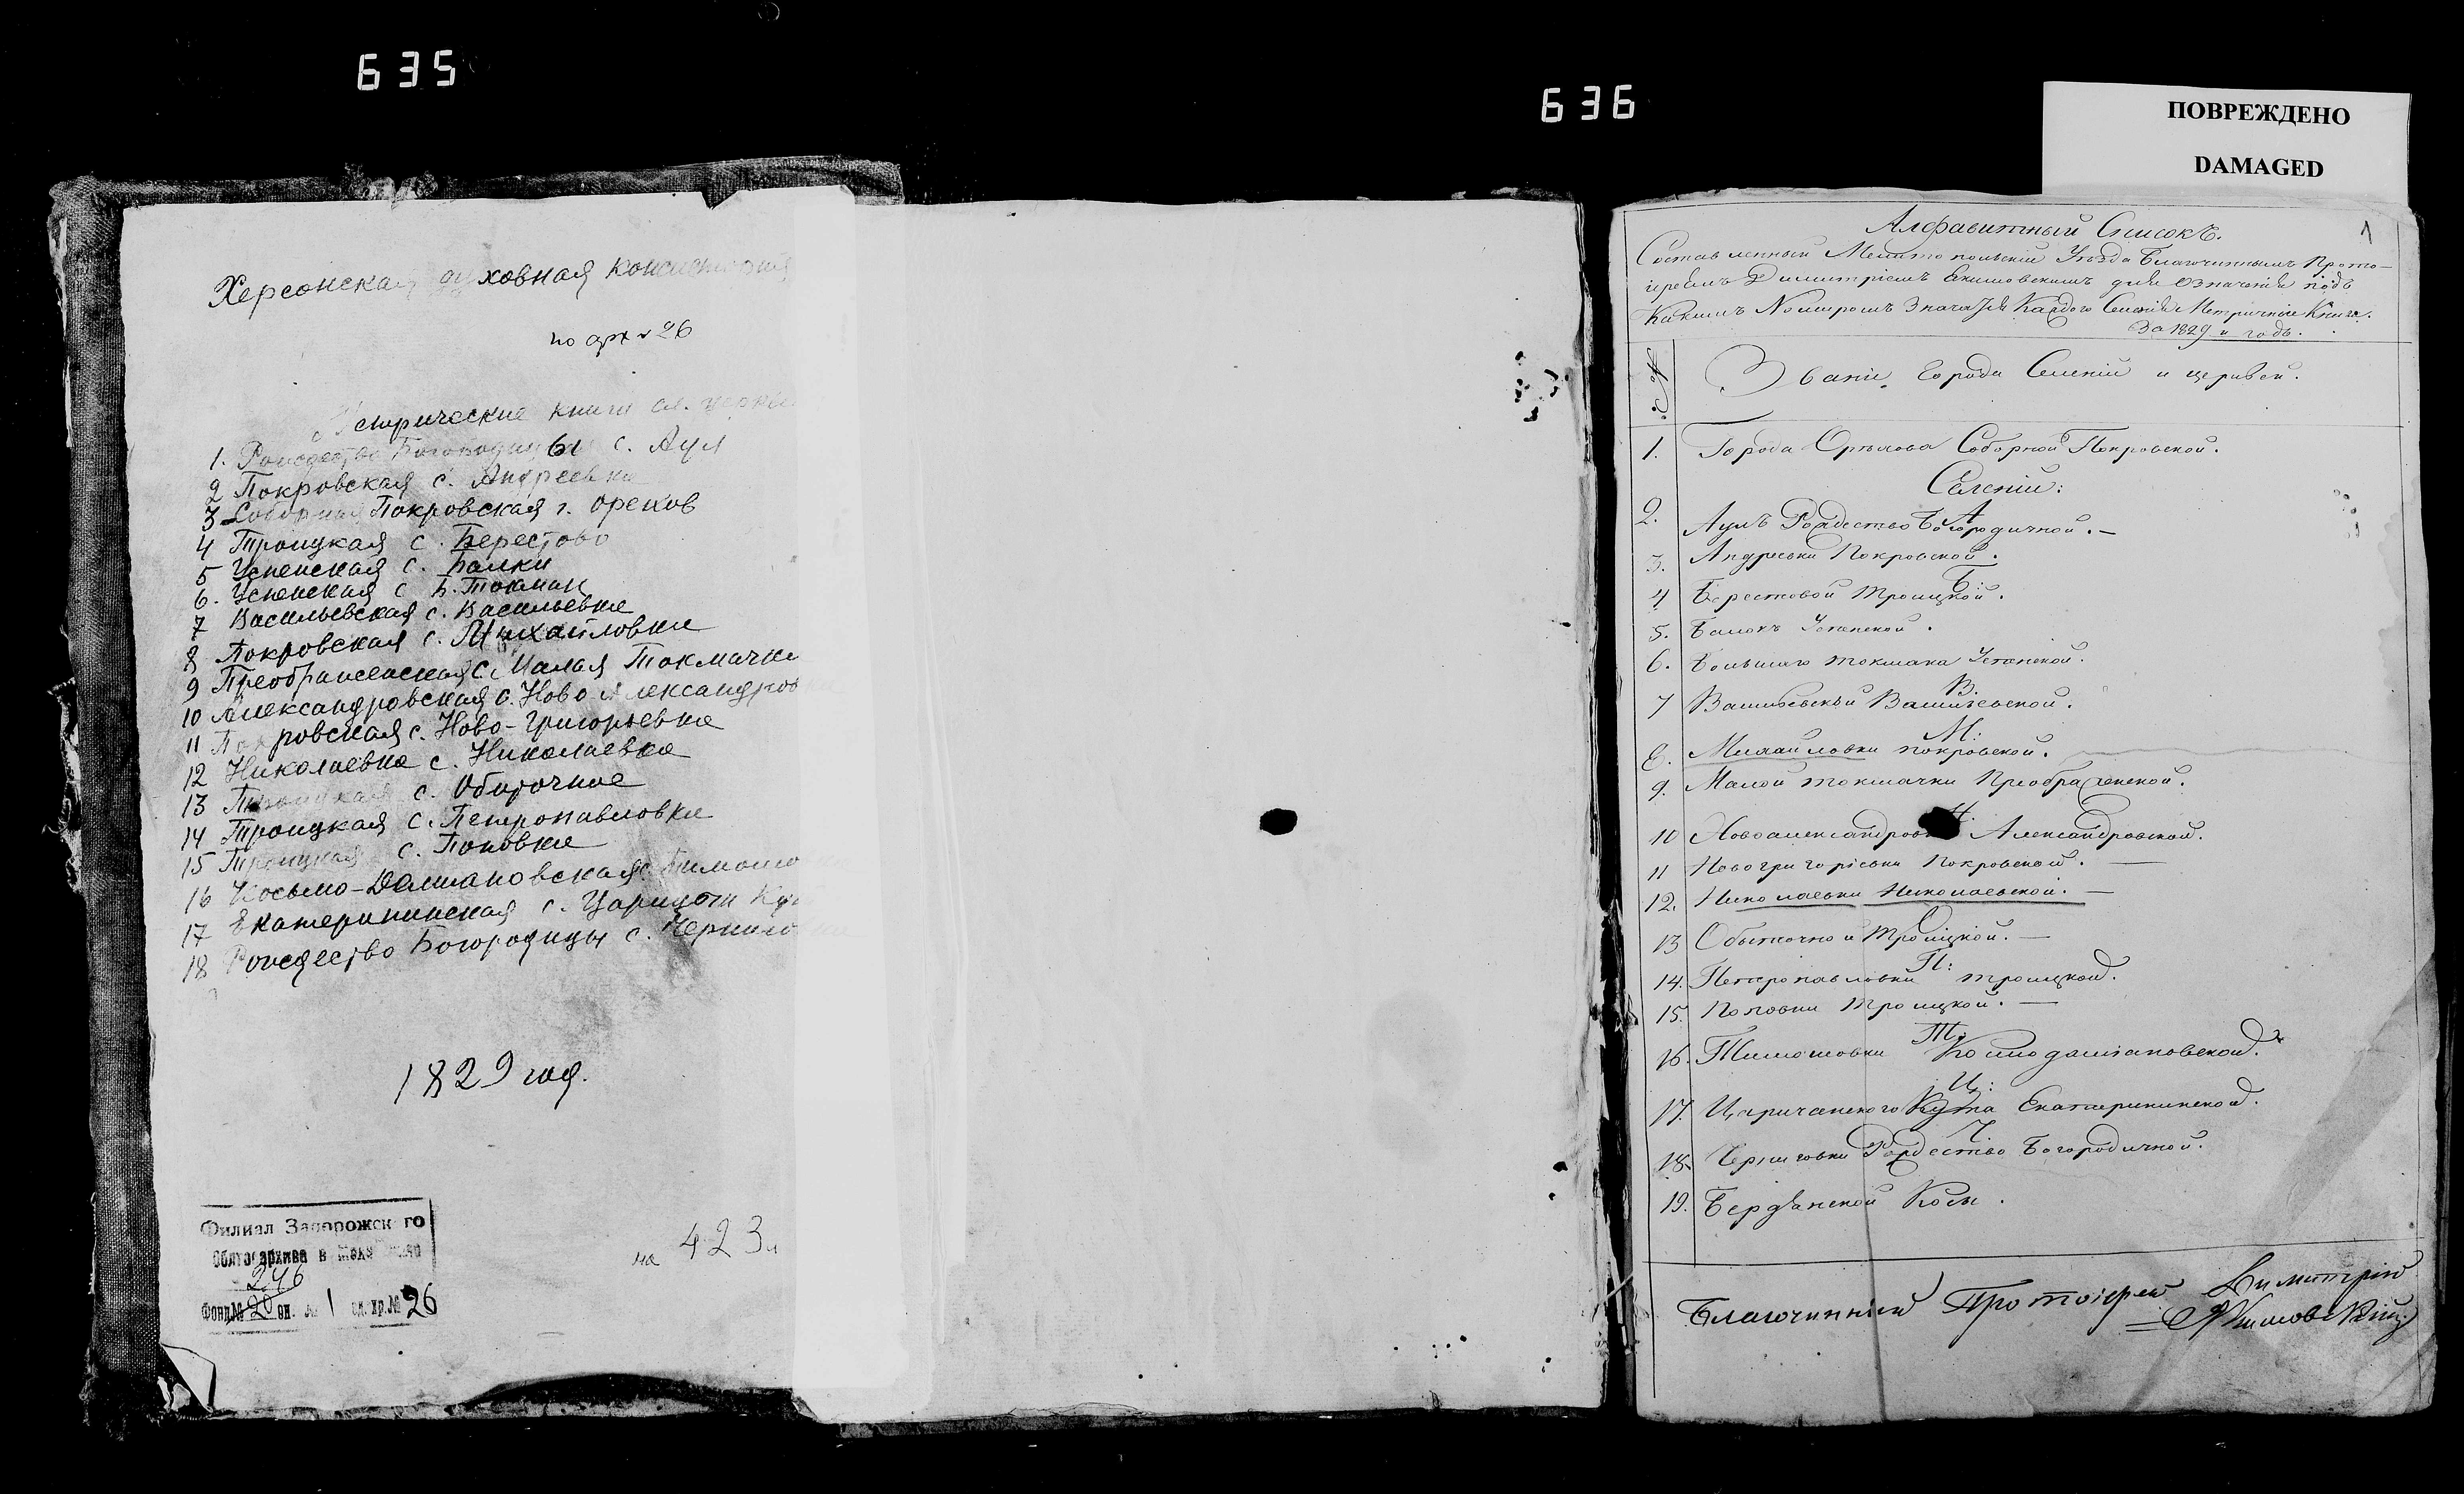 635
Херсонская духовная консистория
по арх № 26
Метрические книги сл. церкве
1. Рождество Богородицы с. Аул
2 Покровская с. Андреевка
3 Соборная Покровская г. Орехов
4 Троицкая с. Берестово
5 Успенская с. Балки
6. Успенская с Б. Токмак
7 Васильевская с. Васильевка
8 Покровская с. Михайловки
9 Преображенская с. Малая Токмачка
10 Александровская с. Ново Александровка
11 Покровская с. Ново-Григорьевка
12 Николаевка с. Николаевка
13 Троицкая с. Обиточное
14 Троицкая с. Петропавловка
15 Троицкая с. Поповка
16 Косьмо-Дамиановская с. Тимошо
17 Екатерининская с. Царицын Кут
18 Рождество Богородицы с. Чернигов
1829 год.
на 423 л
Филиал Запорожского
Облгосархива в
246
Фонд № 20 оп. № 1 ед. хр. № 26
636
ПОВРЕЖДЕНО
DAMAGED
1
Алфавитный Списокъ.
Составленный Мелитопольскій Уѣзда Благочиннымъ Прото-
іереемъ Димитріемъ Екимовскимъ для Означенія подъ
Какимъ Номеромъ Значатся Каждого Селенія Метричные Книги.
За 1829 й годъ.
№
Званіе Города Селеній и церквей.
1. Города Орѣхова Соборной Покровской.
Селеній:
А
2. Аулъ Рождество Богородичной. —
3. Андреевки Покровской.
Б:
4 Берестовой Троицкой.
5. Балокъ Успенской.
6. Большаго токмака Успенской.
В.
7 Василъевкы Василъевской.
М:
8. Михайловки покровской.
9. Малой токмачки Преображенской.
Н.
10 Новоалександровки Александровской.
11 Новогригоріевки Покровской. —
12. Николаевки Николаевской. —
О
13 Обыточной Троицкой. —
П:
14. Петропавловки троицкой.
15. Поповки Троицкой. —
Т:
16. Тимошовки Космодаміановской.
Ц:
17. Царичанского Кута Екатерининской.
Ч
18. Черниговки Рождество Богородичной.
19. Бердянской Косы.
Благочинный Протоіерей Димитрій
Якимовскій